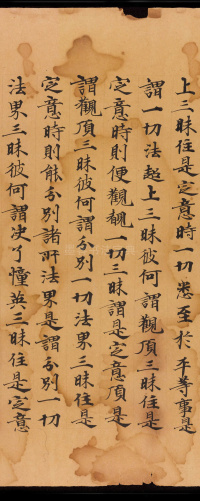 上三昧住是定意時一切悉至於平等事是
謂一切法超上三昧彼何謂觀頂三昧住是
定意時則便觀觀一切三昧謂是定意頂是
謂觀頂三昧彼何謂分別一切法界三昧住是
定意時則能分別諸所法界是謂分別一切
法界三昧彼何謂決了幢英三昧住是定意